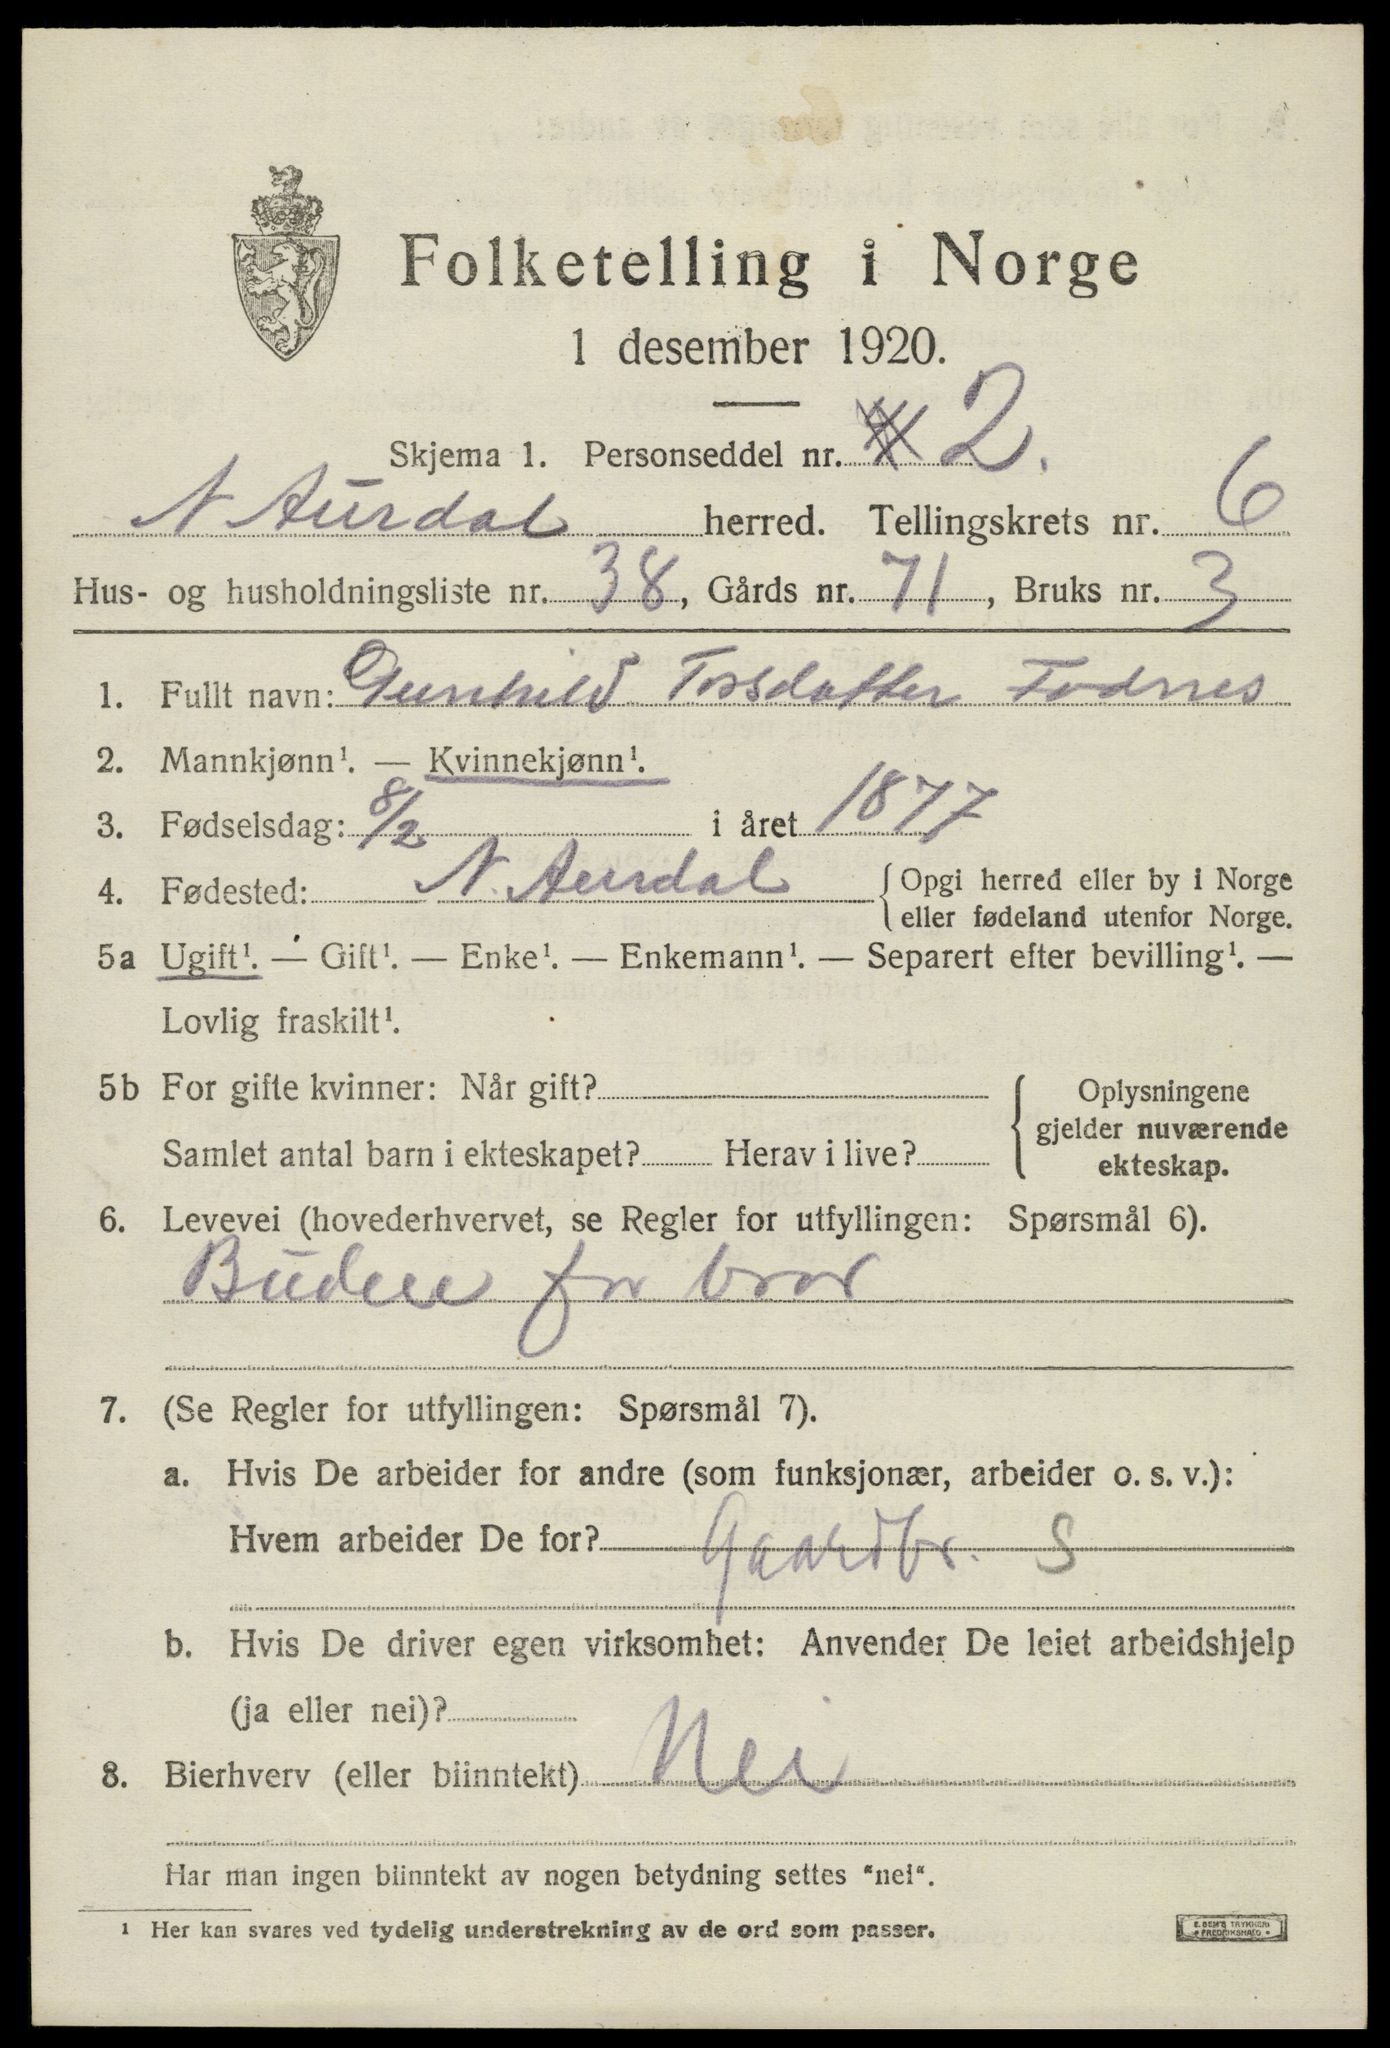 Folketelling i Norge
1 desember 1920.
Skjema 1. Personseddel nr. 2.
N. Aurdal herred. Tellingskrets nr. 6
Hus- og husholdningsliste nr. 38, Gårds nr. 71, Bruks nr. 3
1. Fullt navn: Gunhild Torsdatter Fodnes
2. Mannkjønn¹. — Kvinnekjønn¹.
3. Fødselsdag: 8/2 i året 1877
4. Fødested: N. Aurdal { Opgi herred eller by i Norge
eller fødeland utenfor Norge.
5a Ugift¹. — Gift¹. — Enke¹. — Enkemann¹. — Separert efter bevilling¹. —
Lovlig fraskilt¹.
5b For gifte kvinner: Når gift? { Oplysningene
gjelder nuværende
Samlet antal barn i ekteskapet? Herav i live?
ekteskap.
6. Levevei (hovederhvervet, se Regler for utfyllingen: Spørsmål 6).
Budeie for bror
7. (Se Regler for utfyllingen: Spørsmål 7).
a. Hvis De arbeider for andre (som funksjonær, arbeider o. s. v.):
Hvem arbeider De for? Gaardbr. S
b. Hvis De driver egen virksomhet: Anvender De leiet arbeidshjelp
(ja eller nei)?
8. Bierhverv (eller biinntekt) Nei
Har man ingen biinntekt av nogen betydning settes "nei".
¹ Her kan svares ved tydelig understrekning av de ord som passer.
E. SEM'S TRYKKERI
FREDRIKSHALD